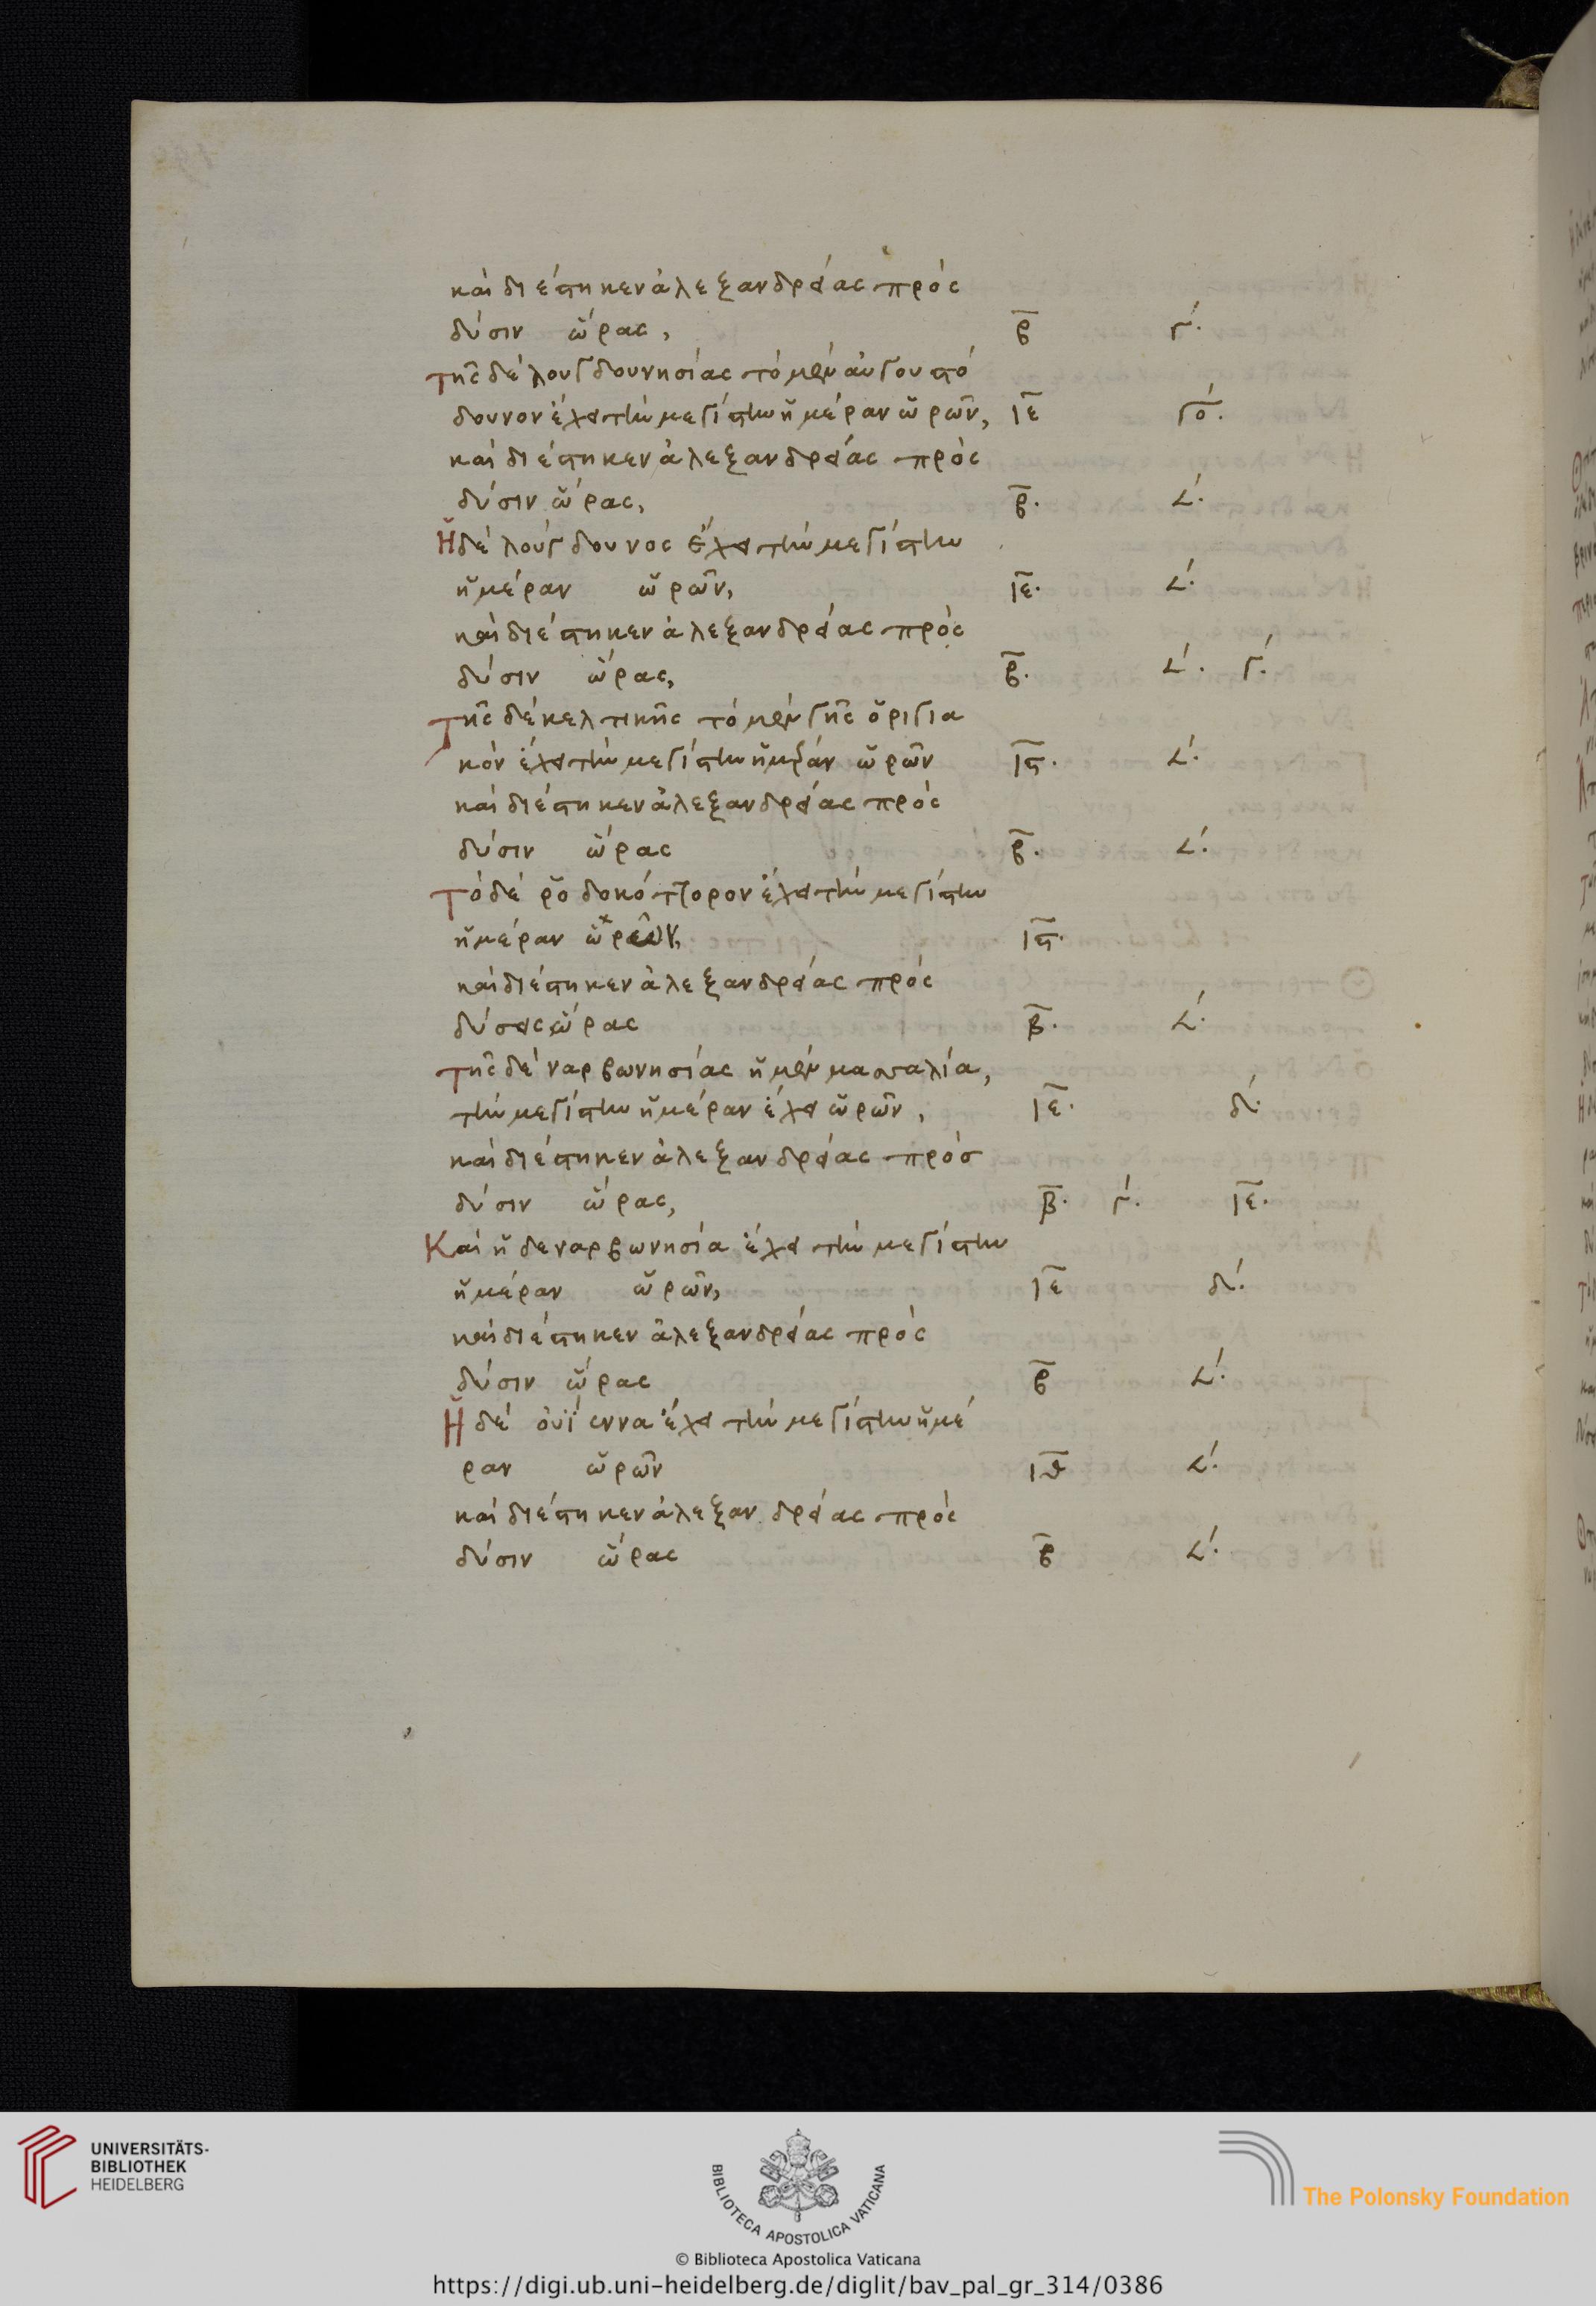 καὶ διέστηκεν ἀλεξανδρείας πρὸς
δύσιν ὥρας, β γ΄.
τῆς δὲ λουγδουνησίας τὸ μὲν αὐγουστό
δουνον ἔχει τὴν μεγίστην ἡμέραν ὡρῶν, ιε γό.
καὶ διέστηκεν ἀλεξανδρείας πρὸς
δύσιν ὥρας, β. 𐅵΄.
Ἡ δὲ λούγδουνος ἔχει τὴν μεγίστην
ἡμέραν ὡρῶν, ιε. 𐅵΄.
καὶ διέστηκεν ἀλεξανδρείας πρὸς
δύσιν ὥρας, β. 𐅵΄. γ΄.
τῆς δὲ κελτικῆς τὸ μὲν γῆς ὁριγια
κὸν ἔχει τὴν μεγίστην ἡμέραν ὡρῶν ις. 𐅵΄.
καὶ διέστηκεν ἀλεξανδρείας πρὸς
δύσιν ὥρας β. 𐅵΄.
τὸ δὲ ῥοδοκότζορον ἔχει τὴν μεγίστην
ἡμέραν ὡρῶν, ις.
καὶ διέστηκεν ἀλεξανδρείας πρὸς
δύσεις ὥρας β. 𐅵΄.
τῆς δὲ ναρβωνησίας ἡ μὲν μασσαλία,
τὴν μεγίστην ἡμέραν ἔχει ὡρῶν, ιε. δ΄.
καὶ διέστηκεν ἀλεξανδρείας πρὸσ
δύσιν ὥρας, β. γ΄. ιε.
Καὶ ἡ δε ναρβωνησία ἔχει τὴν μεγίστην
ἡμέραν ὡρῶν, ιε δ΄.
καὶ διέστηκεν ἀλεξανδρείας πρὸς
δύσιν ὥρας β 𐅵΄.
Ἡ δὲ οὐΐεννα ἔχει τὴν μεγίστην ἡμέ
ραν ὡρῶν ιθ 𐅵΄.
καὶ διέστηκεν ἀλεξανδρείας πρὸς
δύσιν ὥρας β 𐅵΄.
UNIVERSITÄTS-
BIBLIOTHEK
HEIDELBERG
BIBLIOTECA APOSTOLICA VATICANA
The Polonsky Foundation
© Biblioteca Apostolica Vaticana
https://digi.ub.uni-heidelberg.de/diglit/bav_pal_gr_314/0386